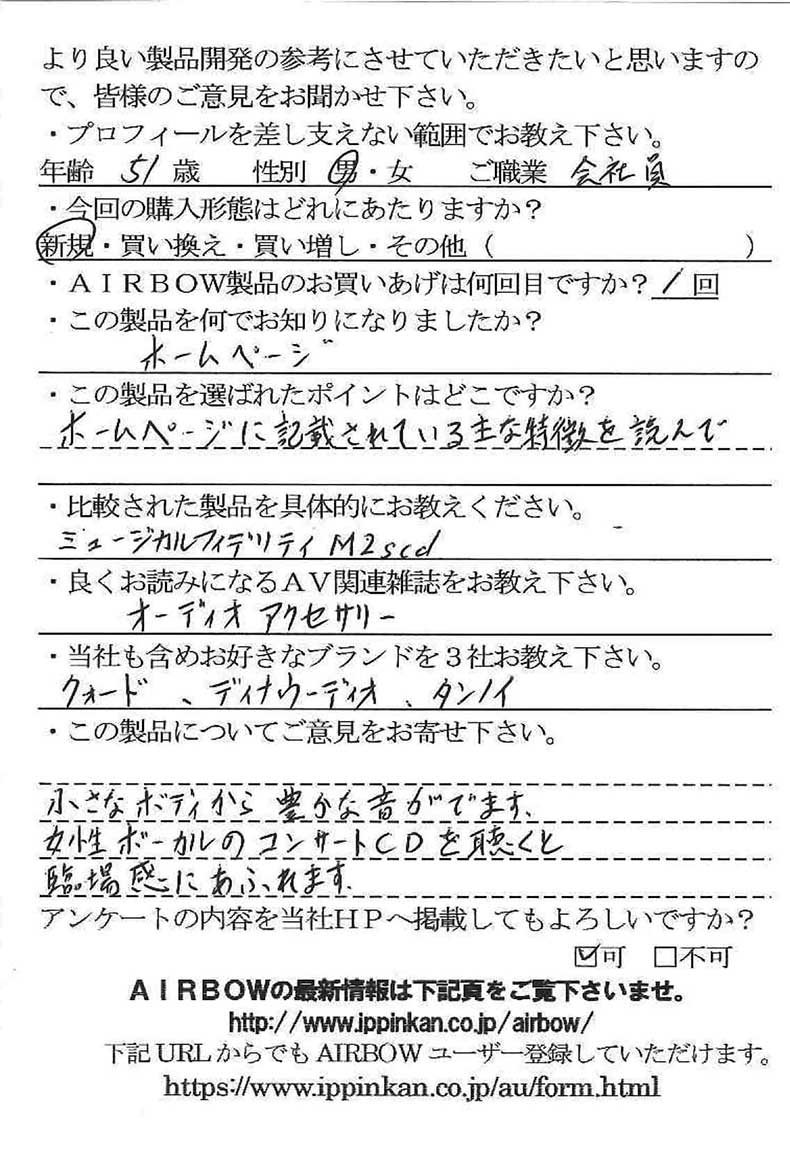 より良い製品開発の参考にさせていただきたいと思いますの
で、皆様のご意見をお聞かせ下さい。
・プロフィールを差し支えない範囲でお教え下さい。
年齢 51 歳 性別 男・女 ご職業 会社員
・今回の購入形態はどれにあたりますか？
新規・買い換え・買い増し・その他（ ）
・ＡＩＲＢＯＷ製品のお買いあげは何回目ですか？ 1 回
・この製品を何でお知りになりましたか？
ホームページ
・この製品を選ばれたポイントはどこですか？
ホームページに記載されている主な特徴を読んで
・比較された製品を具体的にお教えください。
ミュージカルフィデリティ M2scd
・良くお読みになるＡＶ関連雑誌をお教え下さい。
オーディオアクセサリー
・当社も含めお好きなブランドを３社お教え下さい。
クォード、ディナウーディオ、タンノイ
・この製品についてご意見をお寄せ下さい。
小さなボディから豊かな音がでます、
女性ボーカルのコンサートCDを聴くと
臨場感にあふれます。
アンケートの内容を当社ＨＰへ掲載してもよろしいですか？
☑可 □不可
ＡＩＲＢＯＷの最新情報は下記頁をご覧下さいませ。
http://www.ippinkan.co.jp/airbow/
下記 URL からでも AIRBOW ユーザー登録していただけます。
https://www.ippinkan.co.jp/au/form.html